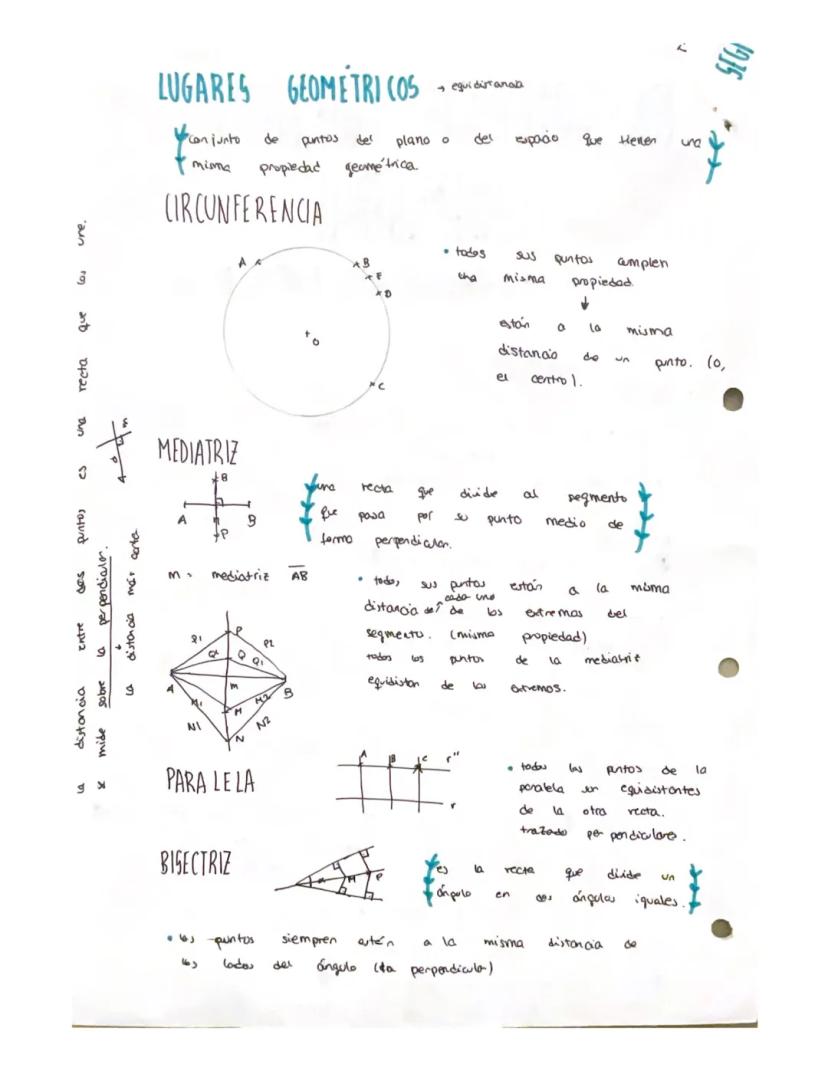 LUGARES GEOMÉTRICOS → equidistancia
conjunto de puntos del plano o del espacio que tienen una
misma propiedad geométrica.
CIRCUNFERENCIA
A
B
E
D
O
C
• todos sus puntos cumplen
una misma propiedad.
↓
están a la misma
distancia de un punto. (o,
el centro).
MEDIATRIZ
B
A
B
P
una recta que divide al segmento
que pasa por su punto medio de
forma perpendicular.
m = mediatriz AB
• todos sus puntos están a la misma
cada uno
distancia de los extremos del
segmento. (misma propiedad)
todos los puntos de la mediatriz
equidistan de los extremos.
P
P1
P2
Q
Q1
A
m
B
M
M1
M2
N1
N
N2
PARALELA
A
B
C
r"
r
• todos los puntos de la
paralela son equidistantes
de la otra recta.
trazado perpendiculares.
BISECTRIZ
M
P
es la recta que divide un
ángulo en dos ángulos iguales.
• los puntos siempren están a la misma distancia de
los lados del ángulo (la perpendicular)
la distancia entre dos puntos es una recta que los une.
se mide sobre la perpendicular.
↓
la distancia más corta